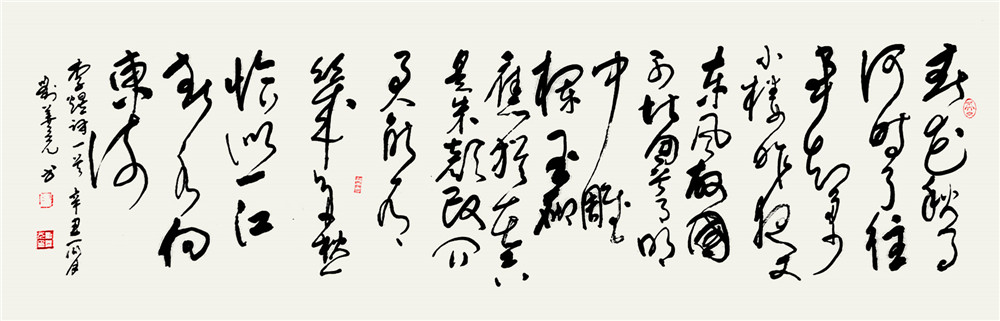 春花秋月
何时了往
事知多少
小楼昨夜又
东风故國
不堪回首月明
中雕
栏玉砌
应犹在只
是朱颜改问
君能有
几多愁
恰似一江
春水向
東流
李煜词一首 辛丑 月
书